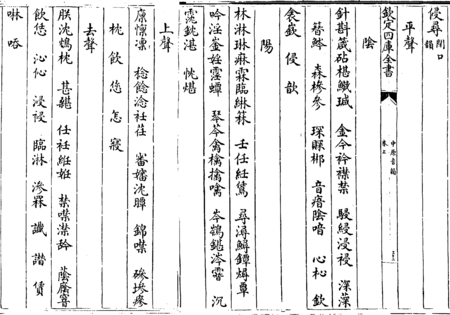 侵尋 閉口韻
平聲
欽定四庫全書 中原音韻
陰
針斟箴砧椹鱵瑊 金今衿襟禁 駸綅浸祲 深
簪 森槮參 琛賝郴 音瘖陰喑 心杺 欽
衾嶔 侵 歆
陽
林淋琳痳霖臨綝箖 壬任紝鵀 尋潯鱏鐔燖蕈
吟淫崟婬霪蟫 琴芩禽檎擒噙 岑 涔 沉
湛 忱煁
上聲
廩懍凜 稔淰衽荏 審嬸沈瞫 錦噤 磣墋瘆
枕 飲 您 怎 寢
去聲
朕沈鴆枕 甚 任衽絍妊 禁噤澿紟 蔭廕窨
飲恁 沁伈 浸祲 臨淋 滲罧 讖 譖 賃
啉 唔